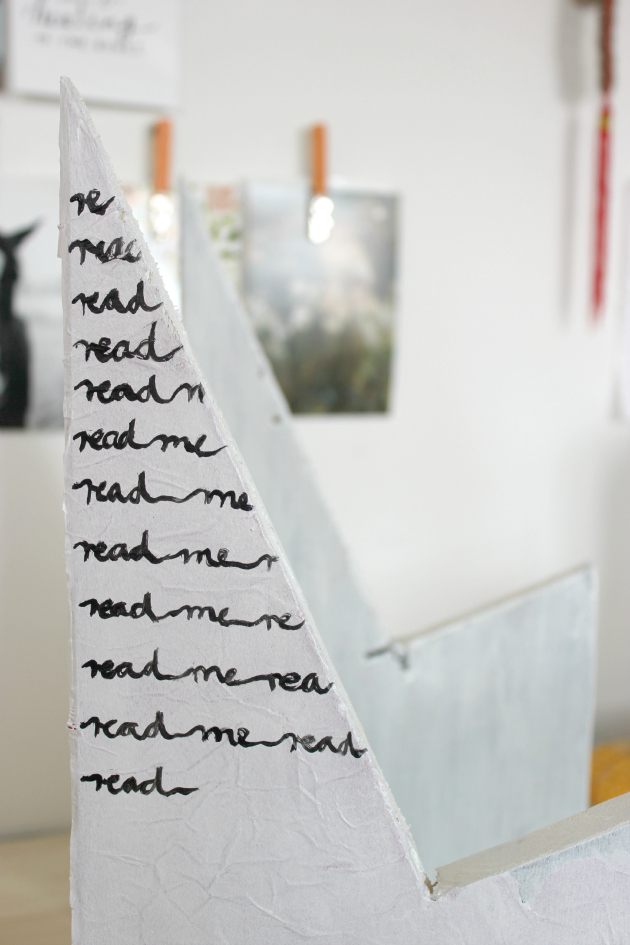 re
read
read
read
read m
read me
read me
read me r
read me re
read me rea
read me read
read